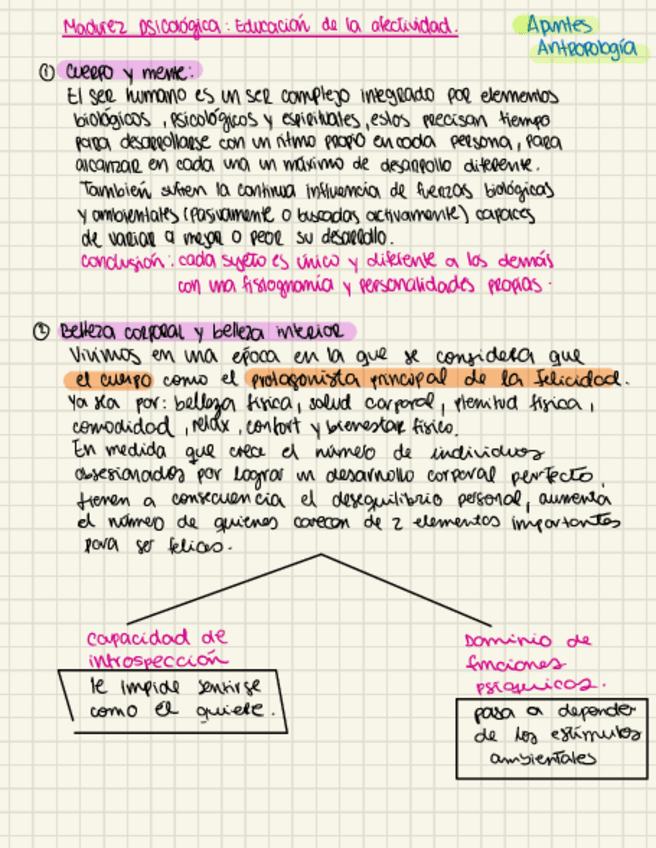 Madurez psicológica: Educación de la afectividad.
Apuntes
Antropología
① Cuerpo y mente:
El ser humano es un ser complejo integrado por elementos
biológicos, psicológicos y espirituales, estos precisan tiempo
para desarrollarse con un ritmo propio en cada persona, para
alcanzar en cada una un máximo de desarrollo diferente.
También sufren la continua influencia de fuerzas biológicas
y ambientales (pasivamente o buscadas activamente) capaces
de variar a mejor o peor su desarrollo.
conclusión: cada sujeto es único y diferente a los demás
con una fisiognomía y personalidades propias.
② Belleza corporal y belleza interior
Vivimos en una época en la que se considera que
el cuerpo como el protagonista principal de la felicidad.
Ya sea por: belleza física, salud corporal, plenitud física,
comodidad, relax, confort y bienestar físico.
En medida que crece el número de individuos
obsesionados por lograr un desarrollo corporal perfecto,
tienen a consecuencia el desequilibrio personal, aumenta
el número de quienes carecen de 2 elementos importantes
para ser felices.
capacidad de
introspección
le impide sentirse
como él quiere.
Dominio de
funciones
psíquicas.
pasa a depender
de los estímulos
ambientales